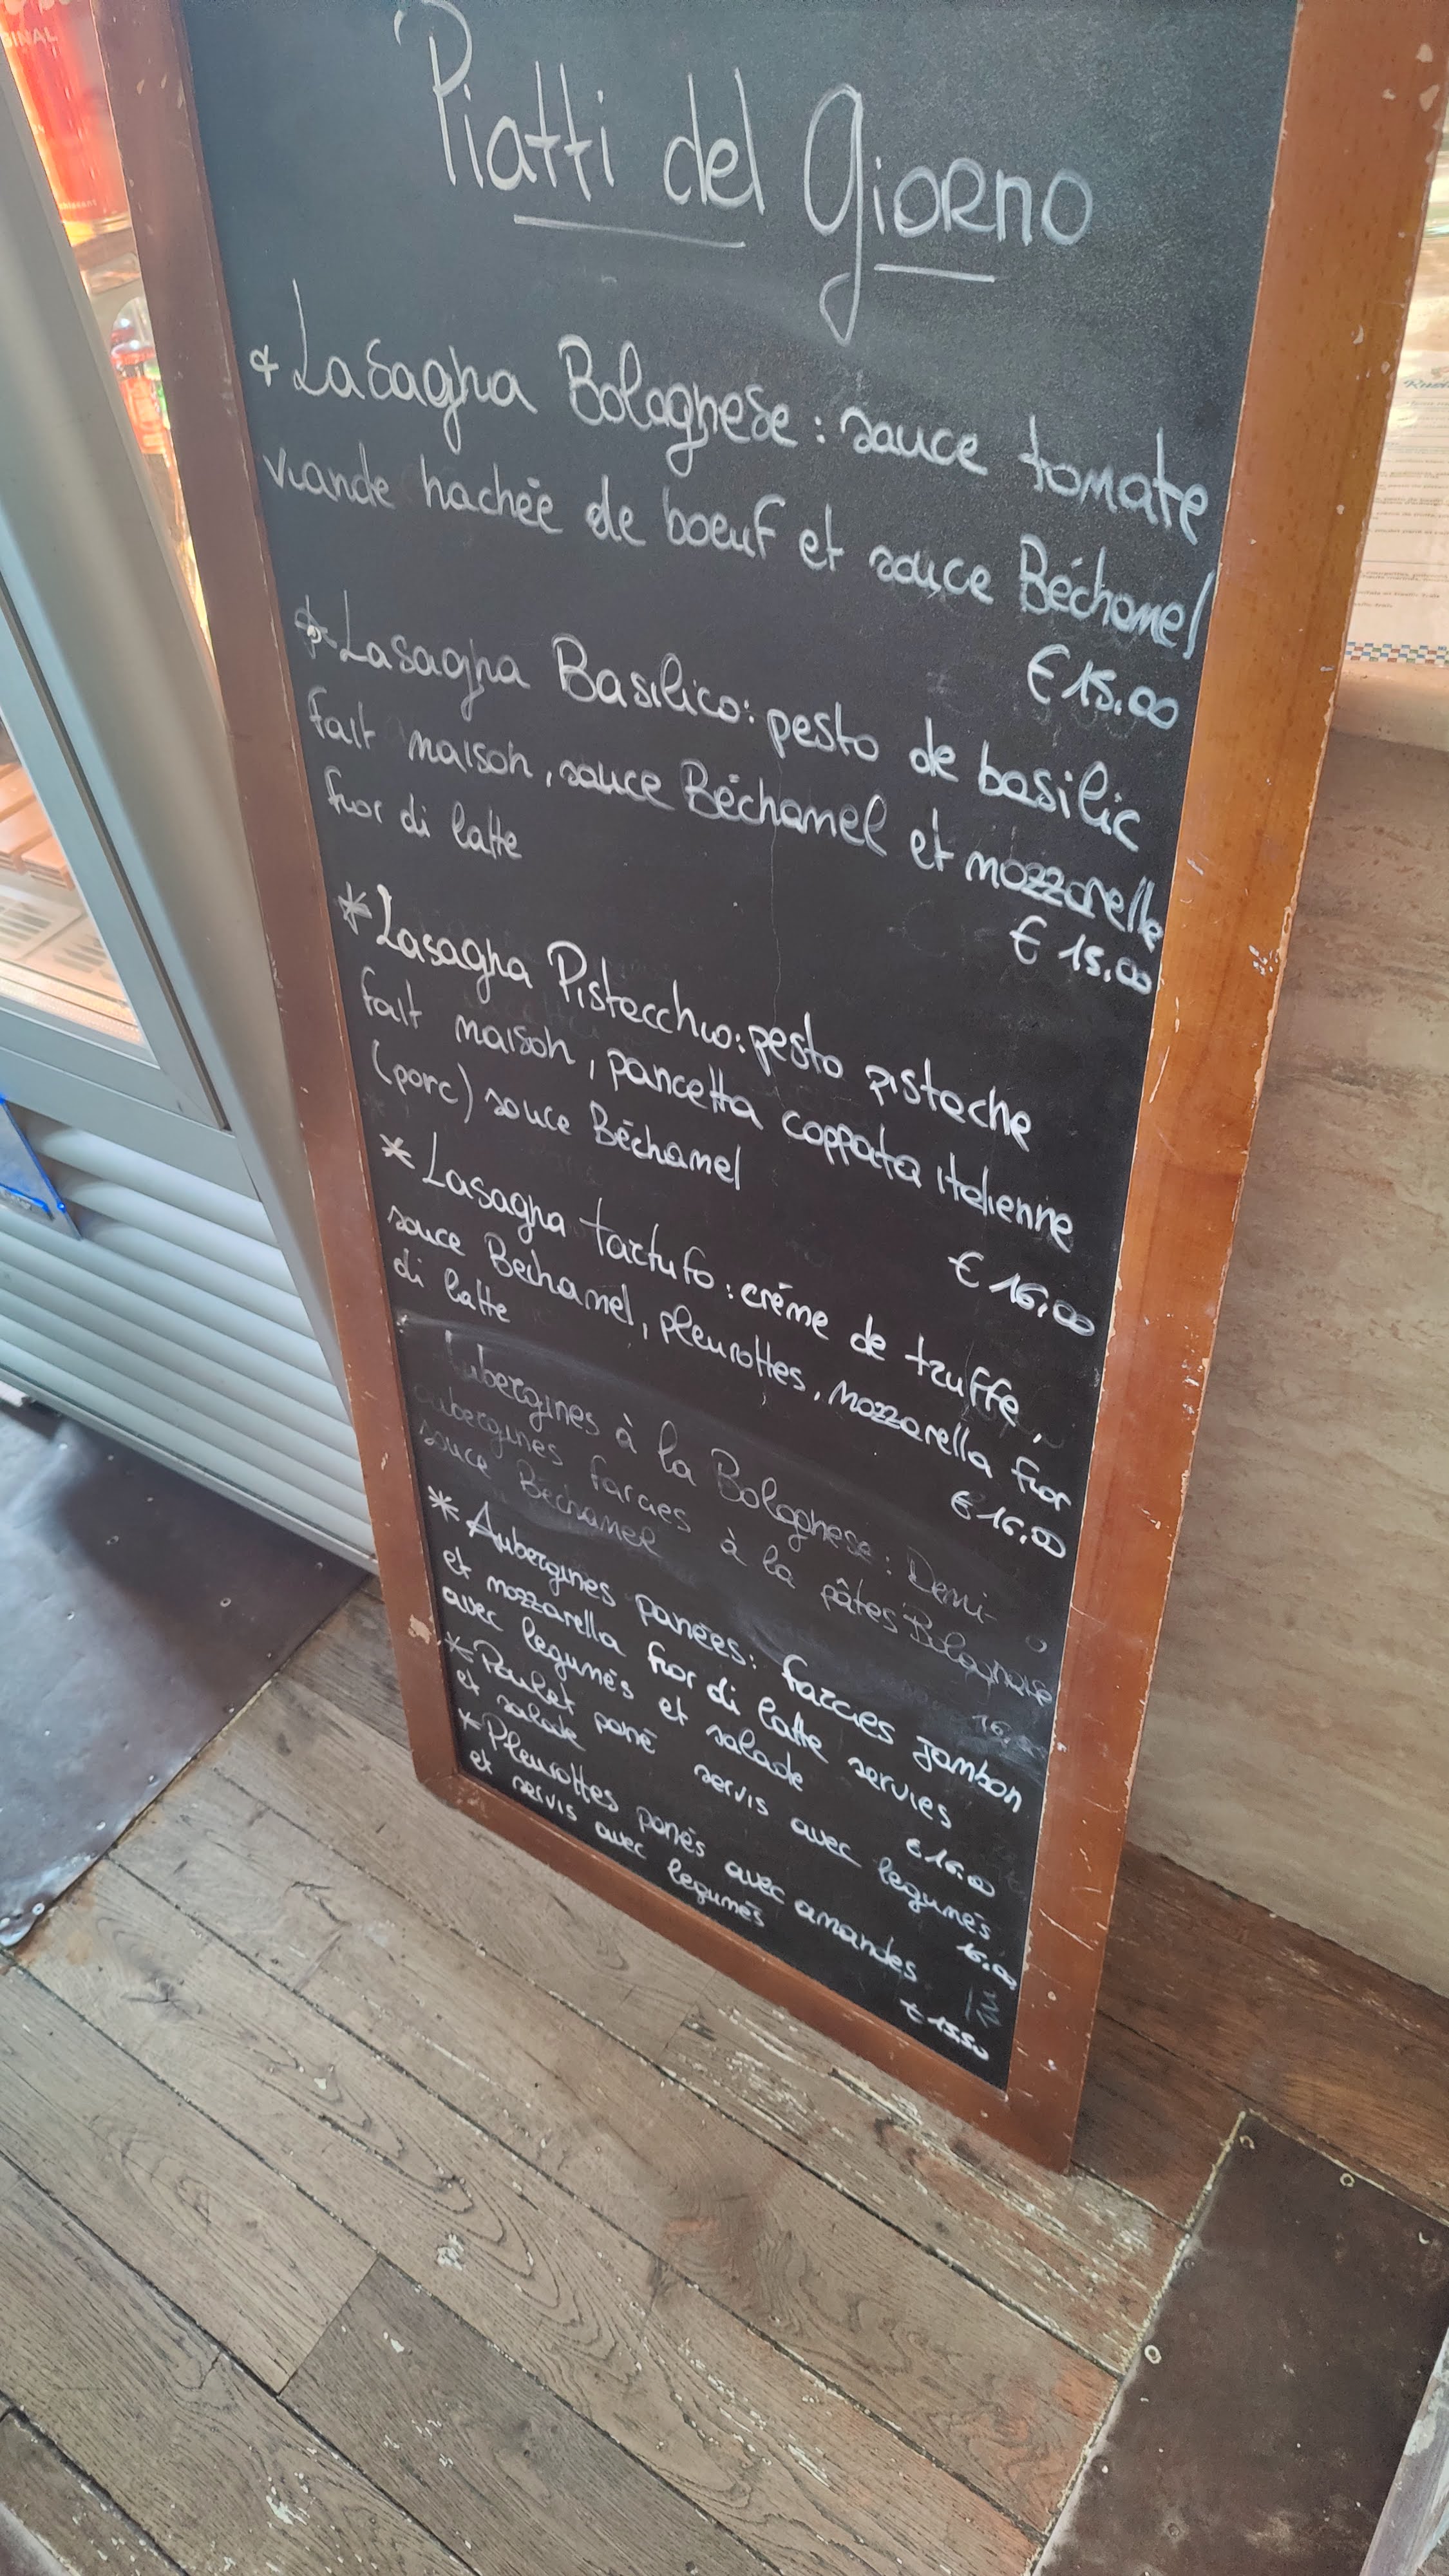 GINAL
Piatti del Giorno
* Lasagna Bolognese: sauce tomate
viande hachée de boeuf et sauce Béchamel
€ 15.00
* Lasagna Basilico: pesto de basilic
fait maison, sauce Béchamel et mozzarella
fior di latte
€ 15.00
* Lasagna Pistacchio: pesto pistache
fait maison, pancetta coppata italienne
(porc) sauce Béchamel
€ 16,00
* Lasagna tartufo: créme de truffe,
sauce Bechamel, pleurottes, mozzarella fior
di latte
€ 16,00
Aubergines à la Bolognese: Demi-
aubergines farcies à la pâtes Bolognaise
sauce Béchamel
16,
* Aubergines panées: farcies jambon
et mozzarella fior di latte servies
avec legumés et salade
€ 16.00
* Poulet pané servis avec legumés
et salade
16.00
* Pleurottes panés avec amandes
et servis avec legumés
€ 15,50